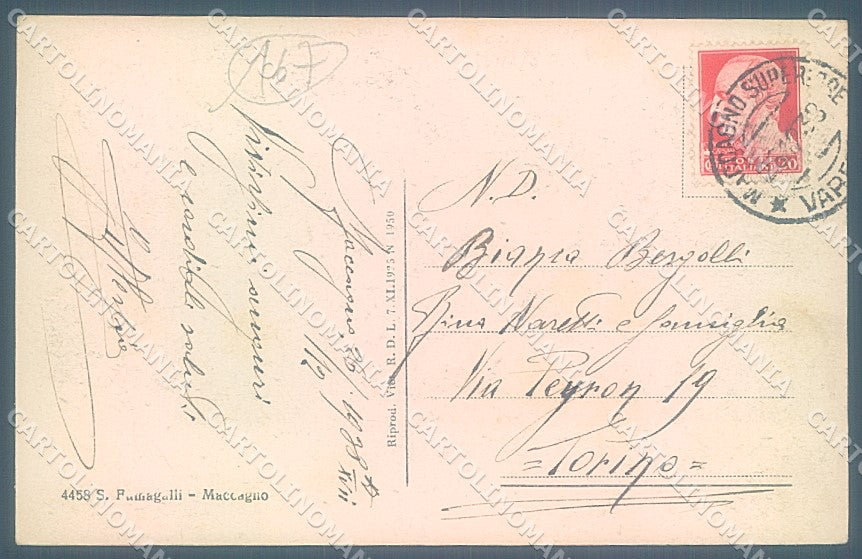 167
Maccagno 26/12 1938
XVII
Vivissimi auguri
e cordiali saluti
N. D.
Bianca Bergolli
Rina Naretti e famiglia
Via Peyron 19
= Torino =
Riprod. Viet. R. D. L. 7 XI.1925 N 1950
4458 S. Fumagalli - Maccagno
MACCAGNO SUPERIORE
VARE
POSTE ITALIANE
20
CARTOLINOMANIA